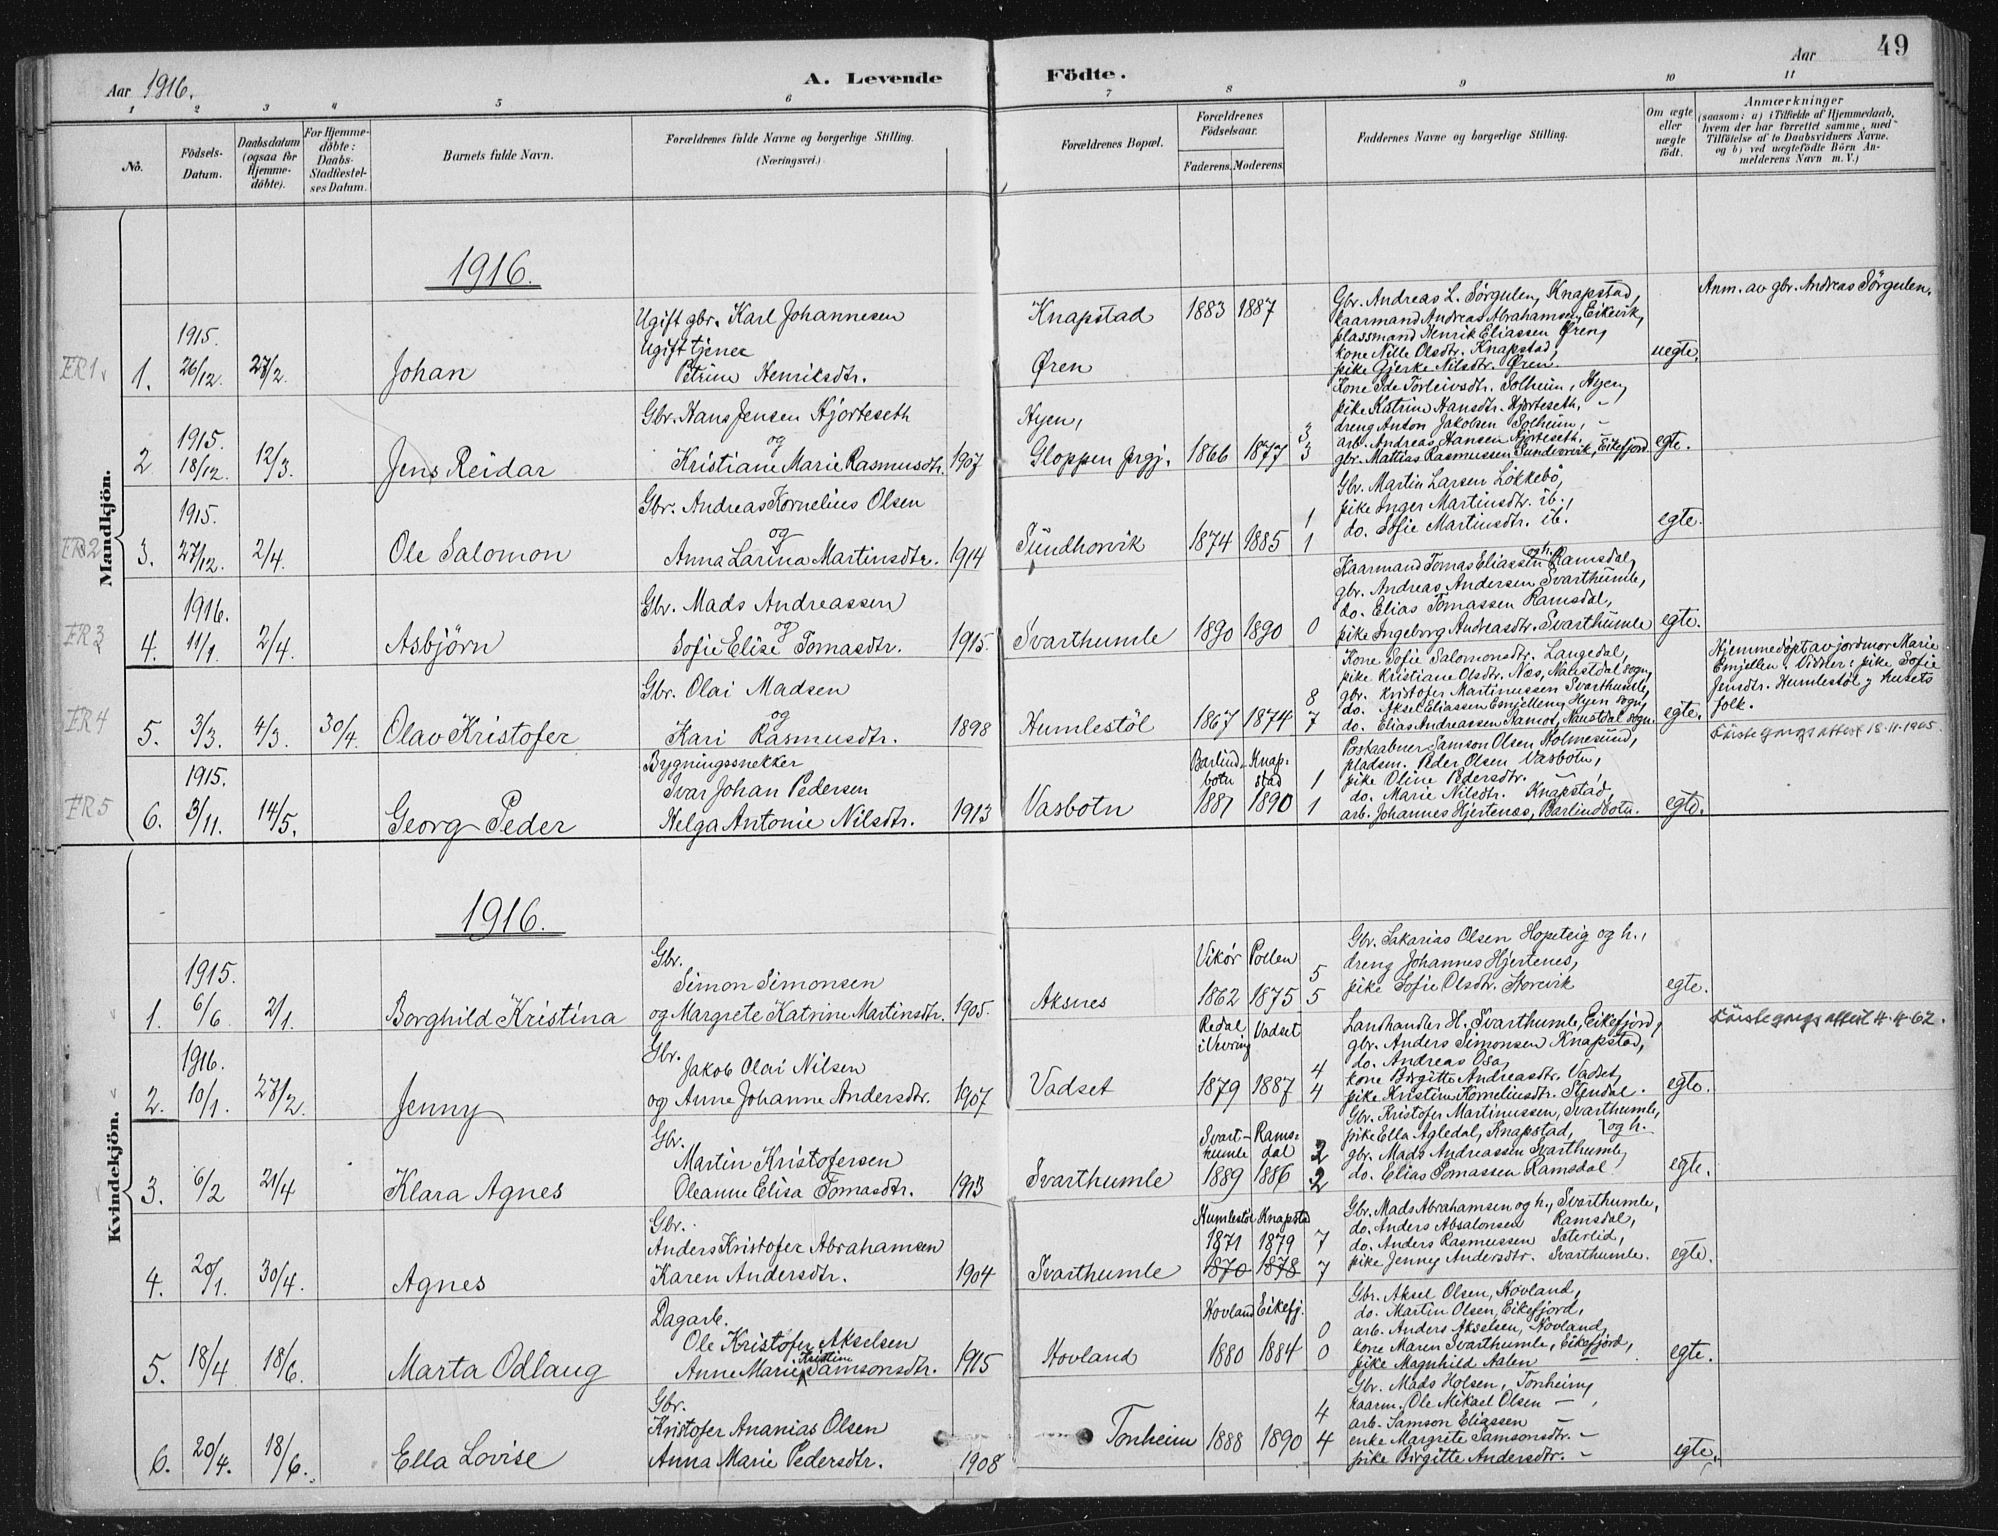 Aar 1916.
A. Levende Födte.
Aar 49
1 2 3 4 5 6 7 8 9 10 11
No.
Födsels-Datum.
Daabsdatum (ogsaa for Hjemme-döbte).
For Hjemme-döbte: Daabs-Stadfæstel-ses Datum.
Barnets fulde Navn.
Forældrenes fulde Navne og borgerlige Stilling.
(Næringsvei.)
Forældrenes Bopæl.
Forældrenes Födselsaar.
Faderens. Moderens.
Faddernes Navne og borgerlige Stilling.
Om ægte eller uægte födt.
Anmærkninger
(saasom: a) i Tilfælde af Hjemmedaab, hvem der har forrettet samme, med Tilföielse af to Daabsvidners Navne, og b) ved uægtefödte Börn Anmelderens Navn m. V.)
Mandkjön.
1916.
FR1
1.
1915.
26/12.
27/2.
Johan
Ugift gbr. Karl Johannesen
Ugift tjener
Petrine Henriksdtr.
Knapstad
Øren
1883 1887
Gbr. Andreas L. Sörgulen, Knapstad,
kaarmand Andreas Abrahamsen, Eikevik,
plassmand Henrik Eliassen Øren,
kone Nille Olsdtr. Knapstad,
pike Gjerke Nilsdtr. Øren.
uegte.
Anm. av gbr. Andreas Sörgulen.
2
1915.
18/12.
12/3.
Jens Reidar
Gbr. Hans Jensen Hjorteseth
og
Kristiane Marie Rasmusdtr.
1907
Hyen,
Gloppen prgj.
1866 1877
3
3
Kone Ide Torleivsdtr. Solheim, Hyen,
pike Katrine Hansdtr. Hjorteseth, -
dreng Anton Jakobsen Solheim, -
arb. Andreas Hansen Hjorteseth, -
gbr. Mattias Rasmussen Sundhovik, Eikefjord
egte.
FR2
3.
1915.
27/12.
2/4.
Ole Salomon
Gbr. Andreas Kornelius Olsen
og
Anna Larina Martinsdtr.
1914
Sundhovik
1874 1885
1
1
Gbr. Martin Larsen Løkkebö,
pike Inger Martinsdtr. ib.,
do. Sofie Martinsdtr. ib.
egte.
FR3
4.
1916.
11/1.
2/4.
Asbjörn
Gbr. Mads Andreassen
og
Sofie Elise Tomasdtr.
1915.
Svarthumle
1890 1890 0
Kaarmand Tomas Eliassen og h. Ramsdal,
gbr. Andreas Andersen Svarthumle,
do. Elias Tomassen Ramsdal,
pike Ingeborg Andreasdtr. Svarthumle
egte.
FR4
5.
3/3.
4/3.
30/4.
Olav Kristofer
Gbr. Olai Madsen
og
Kari Rasmusdtr.
1898
Humlestöl
1867 1874
8
7
Kone Sofie Salomonsdtr. Langedal,
pike Kristiane Olsdtr. Næs, Naustdal sogn,
gbr. Kristofer Martinussen Svarthumle,
do. Aksel Eliassen Emjellen, Hyen sogn,
do. Elias Andreassen Ramos, Naustdal sogn.
egte.
Hjemmedöpt av jordmor Marie Emjellen. Vidner: pike Sofie Jensdtr. Humlestöl og husets folk.
Förstegangs attest 18-11-1905.
FR5
6.
1915.
3/11.
14/5.
Georg Peder
Bygningssnekker
Ivar Johan Pedersen
Helga Antonie Nilsdtr.
1913
Vasbotn
Barlind-botn Knap-stad
1887 1890
1
1
Postaabner Samson Olsen Holmesund,
pladsm. Peder Olsen Vasbotn,
pike Oline Pedersdtr. -
do. Marie Nilsdtr. Knapstad,
arb. Johannes Hjertenæs, Barlindbotn.
egte.
Kvindekjön.
1916.
1.
1915.
6/6
2/1.
Borghild Kristina
Gbr.
Simon Simonsen
og Margrete Katrine Martinsdtr.
1905.
Aksnes
Vikör Pollen
1862 1875
5
5
Gbr. Sakarias Olsen Hopeteig og h.,
dreng Johannes Hjertenes,
pike Sofie Olsdtr. Storevik
egte.
Förstegangs attest 4-4-62.
2.
1916.
10/1.
27/2.
Jenny
Gbr.
Jakob Olai Nilsen
og Anne Johanne Andersdtr.
1907
Vadset
Redal i Vevring Vadset
1879 1887
4
4
Landhandler H. Svarthumle, Eikefjord,
gbr. Anders Simonsen Knapstad,
do. Andreas Osa,
kone Birgitte Andreasdtr. Vadset,
pike Kristine Kornelius​dtr. Stendal.
egte.
3.
6/2
21/4
Klara Agnes
Gbr.
Martin Kristofersen
Oleanne Elisa Tomasdtr.
1913
Svarthumle
Svart-humle Rams-dal
1889 1886
2
2
Gbr. Kristofer Martinussen, Svarthumle,
pike Ella Agledal, Knapstad, og h.
gbr. Mads Andreassen Svarthumle,
do. Elias Tomassen Ramsdal
egte.
4.
20/1.
30/4.
Agnes
Gbr.
Anders Kristofer Abrahamsen
Karen Andersdtr.
1904
Svarthumle
Humlestöl Knapstad
1871 1879 7
1870 1878 7
Gbr. Mads Abrahamsen og h., Svarthumle,
do. Anders Absalonsen Ramsdal,
do. Anders Rasmussen Sæterlid,
pike Jenny Andersdtr. Svarthumle.
egte.
5.
18/4
18/6.
Marta Odlaug
Dagarb.
Ole Kristofer Akselsen
Anne Marie Kristine Samsonsdtr.
1915
Hovland
Hovland Eikefj.
1880 1884
0
0
Gbr. Aksel Olsen, Hovland,
do. Martin Olsen, Eikefjord,
arb. Anders Akselsen, Hovland,
kone Maren Svarthumle, Eikefjord,
pike Magnhild Aalen -
egte.
6.
20/4.
18/6.
Ella Lovise
Gbr.
Kristofer Ananias Olsen
Anna Marie Pedersdtr.
1908
Tonheim
1888 1890
4
4
Gbr. Mads Holsen, Tonheim,
kaarm. Ole Mikael Olsen -,
arb. Samson Eliassen -
enke Margrete Samsonsdtr. -
pike Birgitte Andersdtr. -
egte.